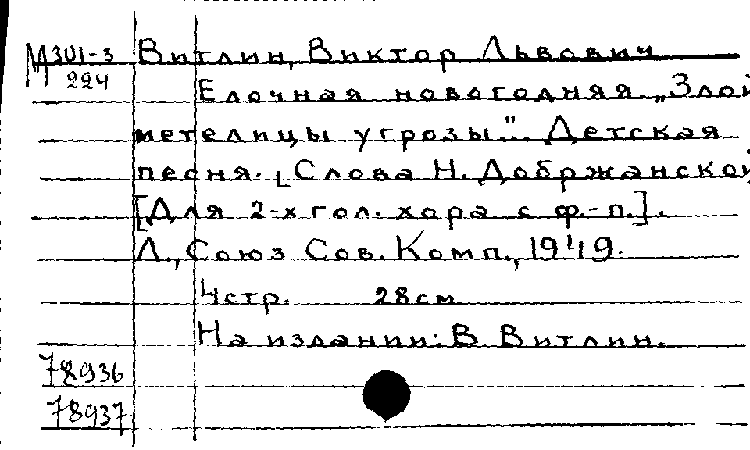 М 301-3 Витлин, Виктор Львович
224
Елочная новогодняя. „Злой
метелицы угрозы". Детская
песня. [Слова Н. Добржанской
[Для 2-х гол. хора с ф.-п.].
Л., Союз Сов. Комп., 1949.
4 стр. 28 см
На издании: В. Витлин.
78936
78937